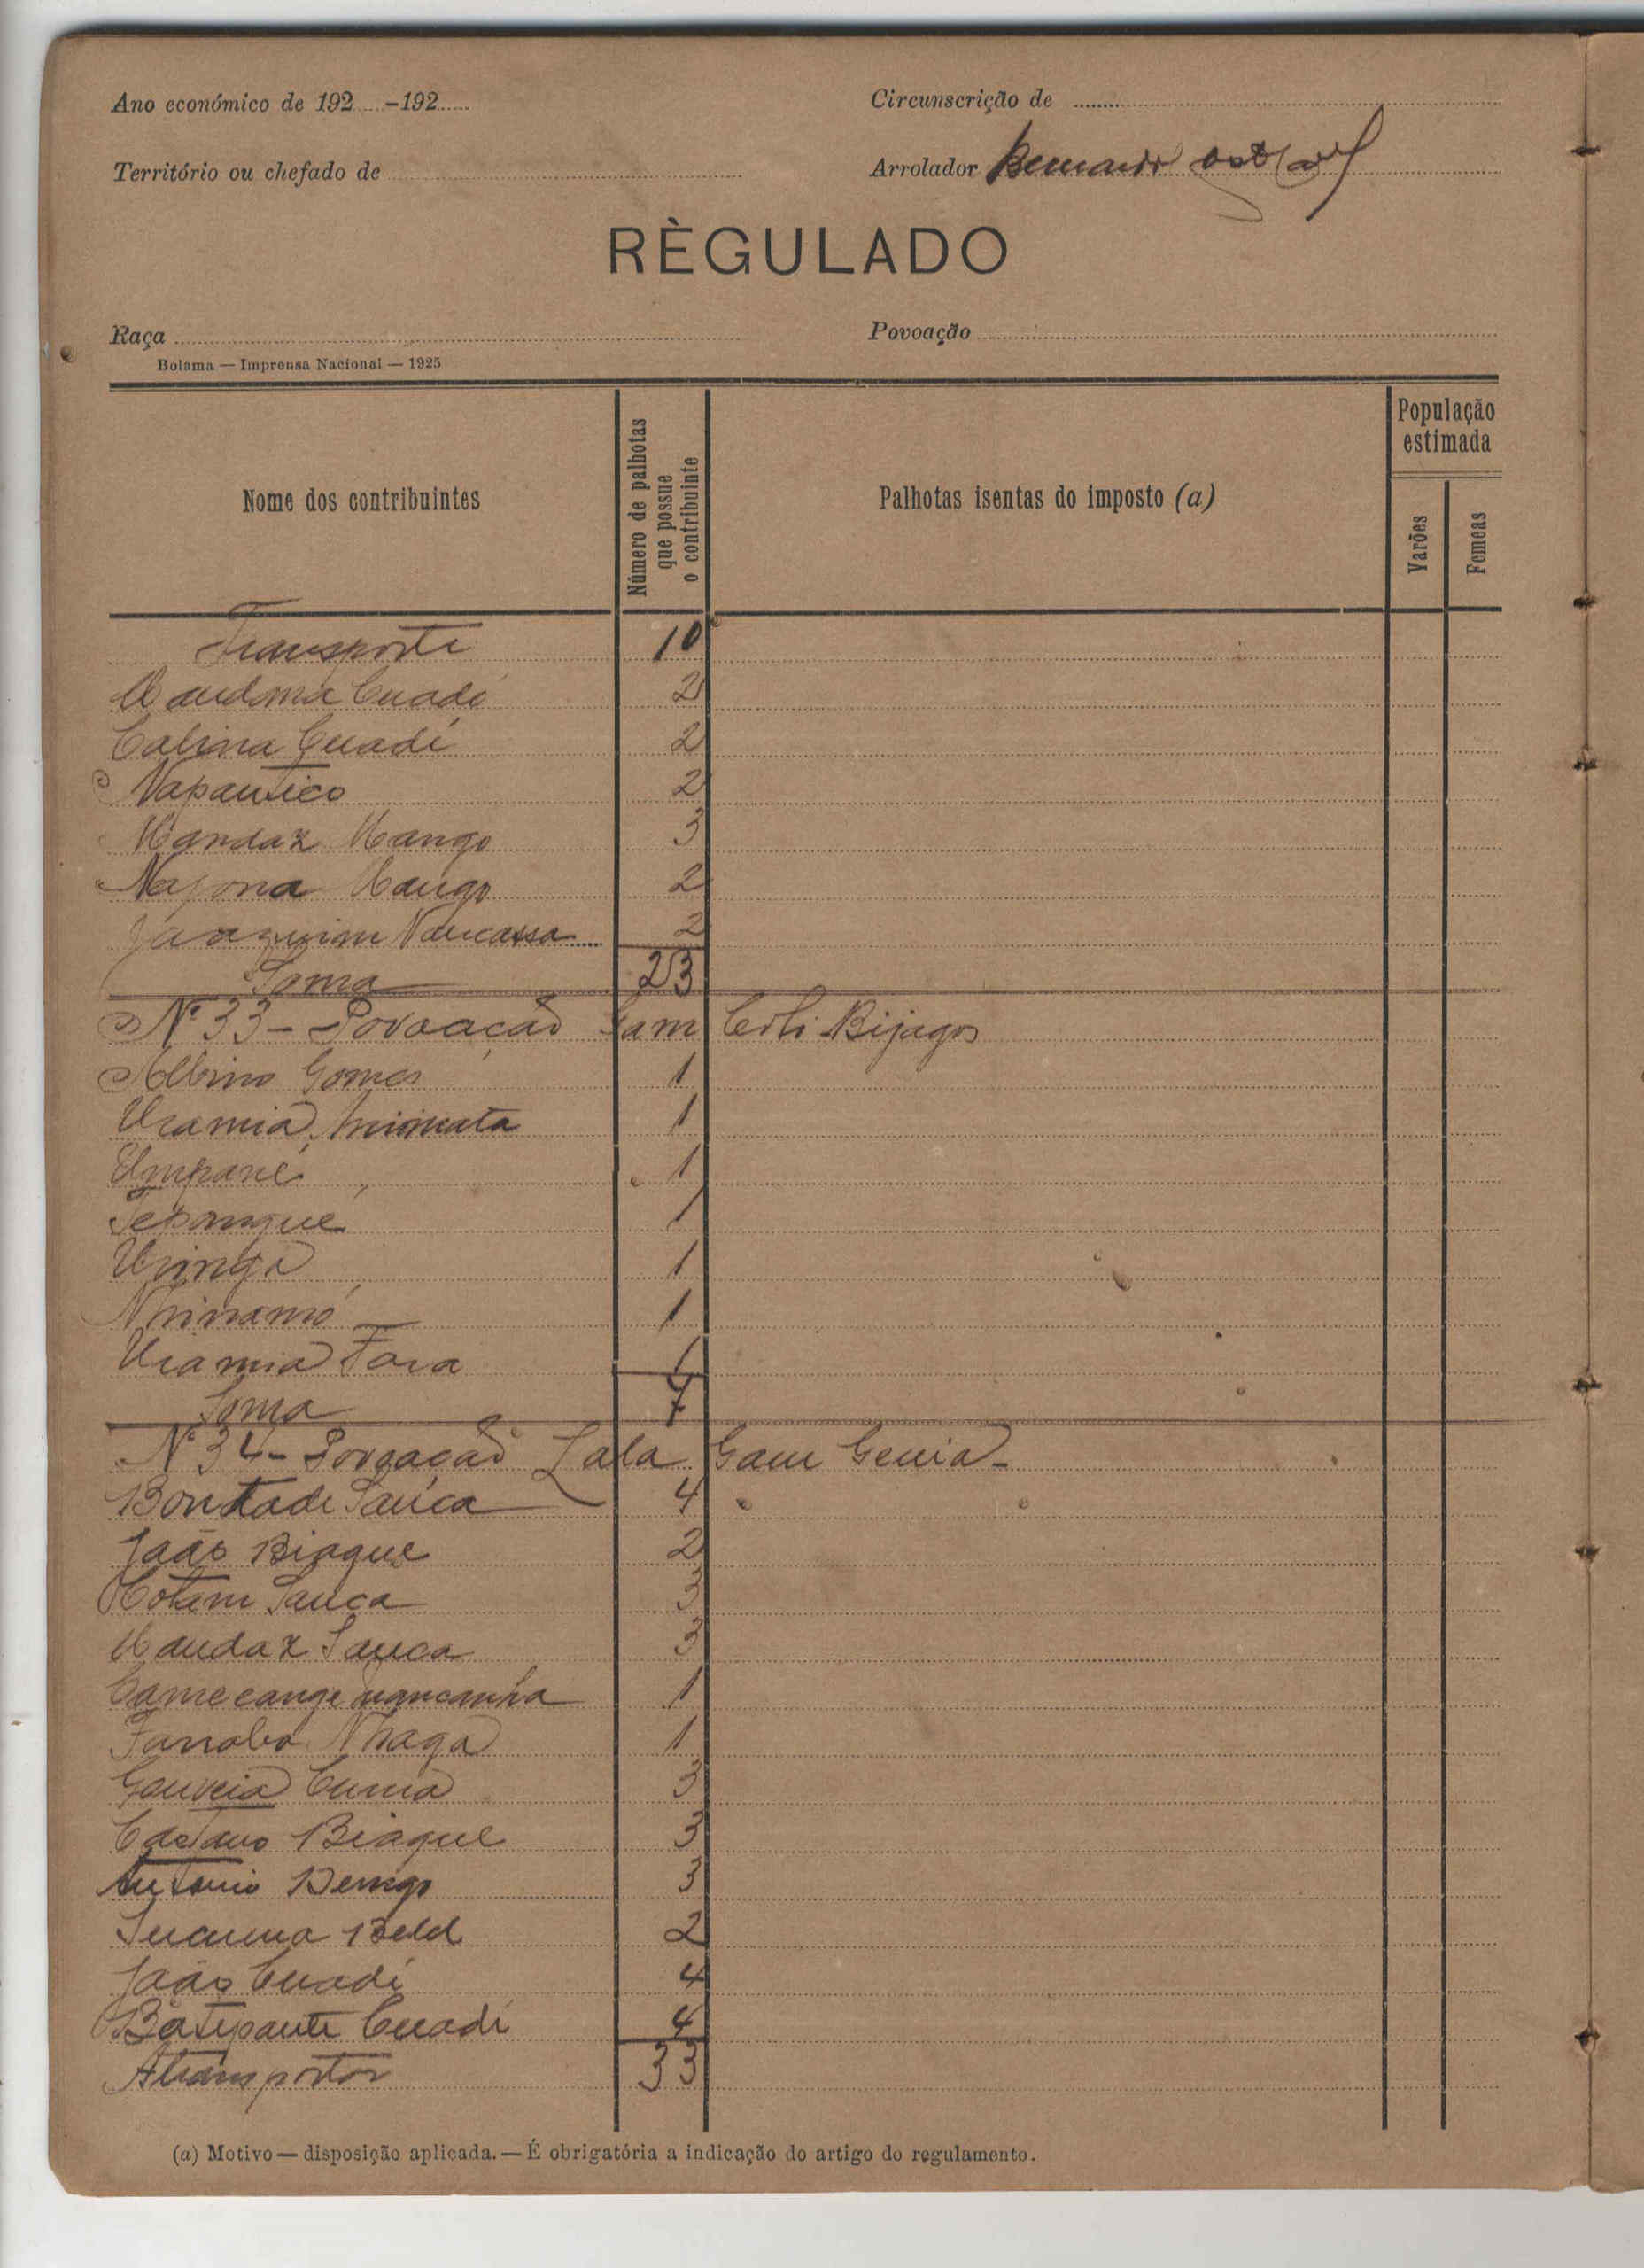 Ano económico de 192.....-192.....
Circunscrição de
Território ou chefado de
Arrolador Bernardo
RÈGULADO
Raça
Povoação
Bolama — Imprensa Nacional — 1925
Nome dos contribuintes
Número de palhotas que possue o contribuinte
Palhotas isentas do imposto (a)
População estimada
Varões
Femeas
Transporte 10
Cuadé 2
Calina Cuadí 2
Napantico 2
Mandax Mango 3
Najona Mango 2
Joaquim Nancassa 2
Soma 23
Nº 33 - Povoação Gam Bijagos
Albino Gomes 1
Uramia 1
Umpané 1
Sepangue 1
Uringa 1
Nhinomó 1
Uramia Fara 1
Soma 7
Nº 34 - Povoação Lala Gam Genia -
Bontade Sanca 4
João Biague 2
Cotam Sanca 3
Mandax Sanca 3
Camecange mancanha 1
Nhaga 1
Gouveia Cuma 3
Caetano Biague 3
Antonio Demgo 3
2
João Cuadí 4
Batepante Cuadí 4
A transportar 33
(a) Motivo — disposição aplicada. — É obrigatória a indicação do artigo do regulamento.